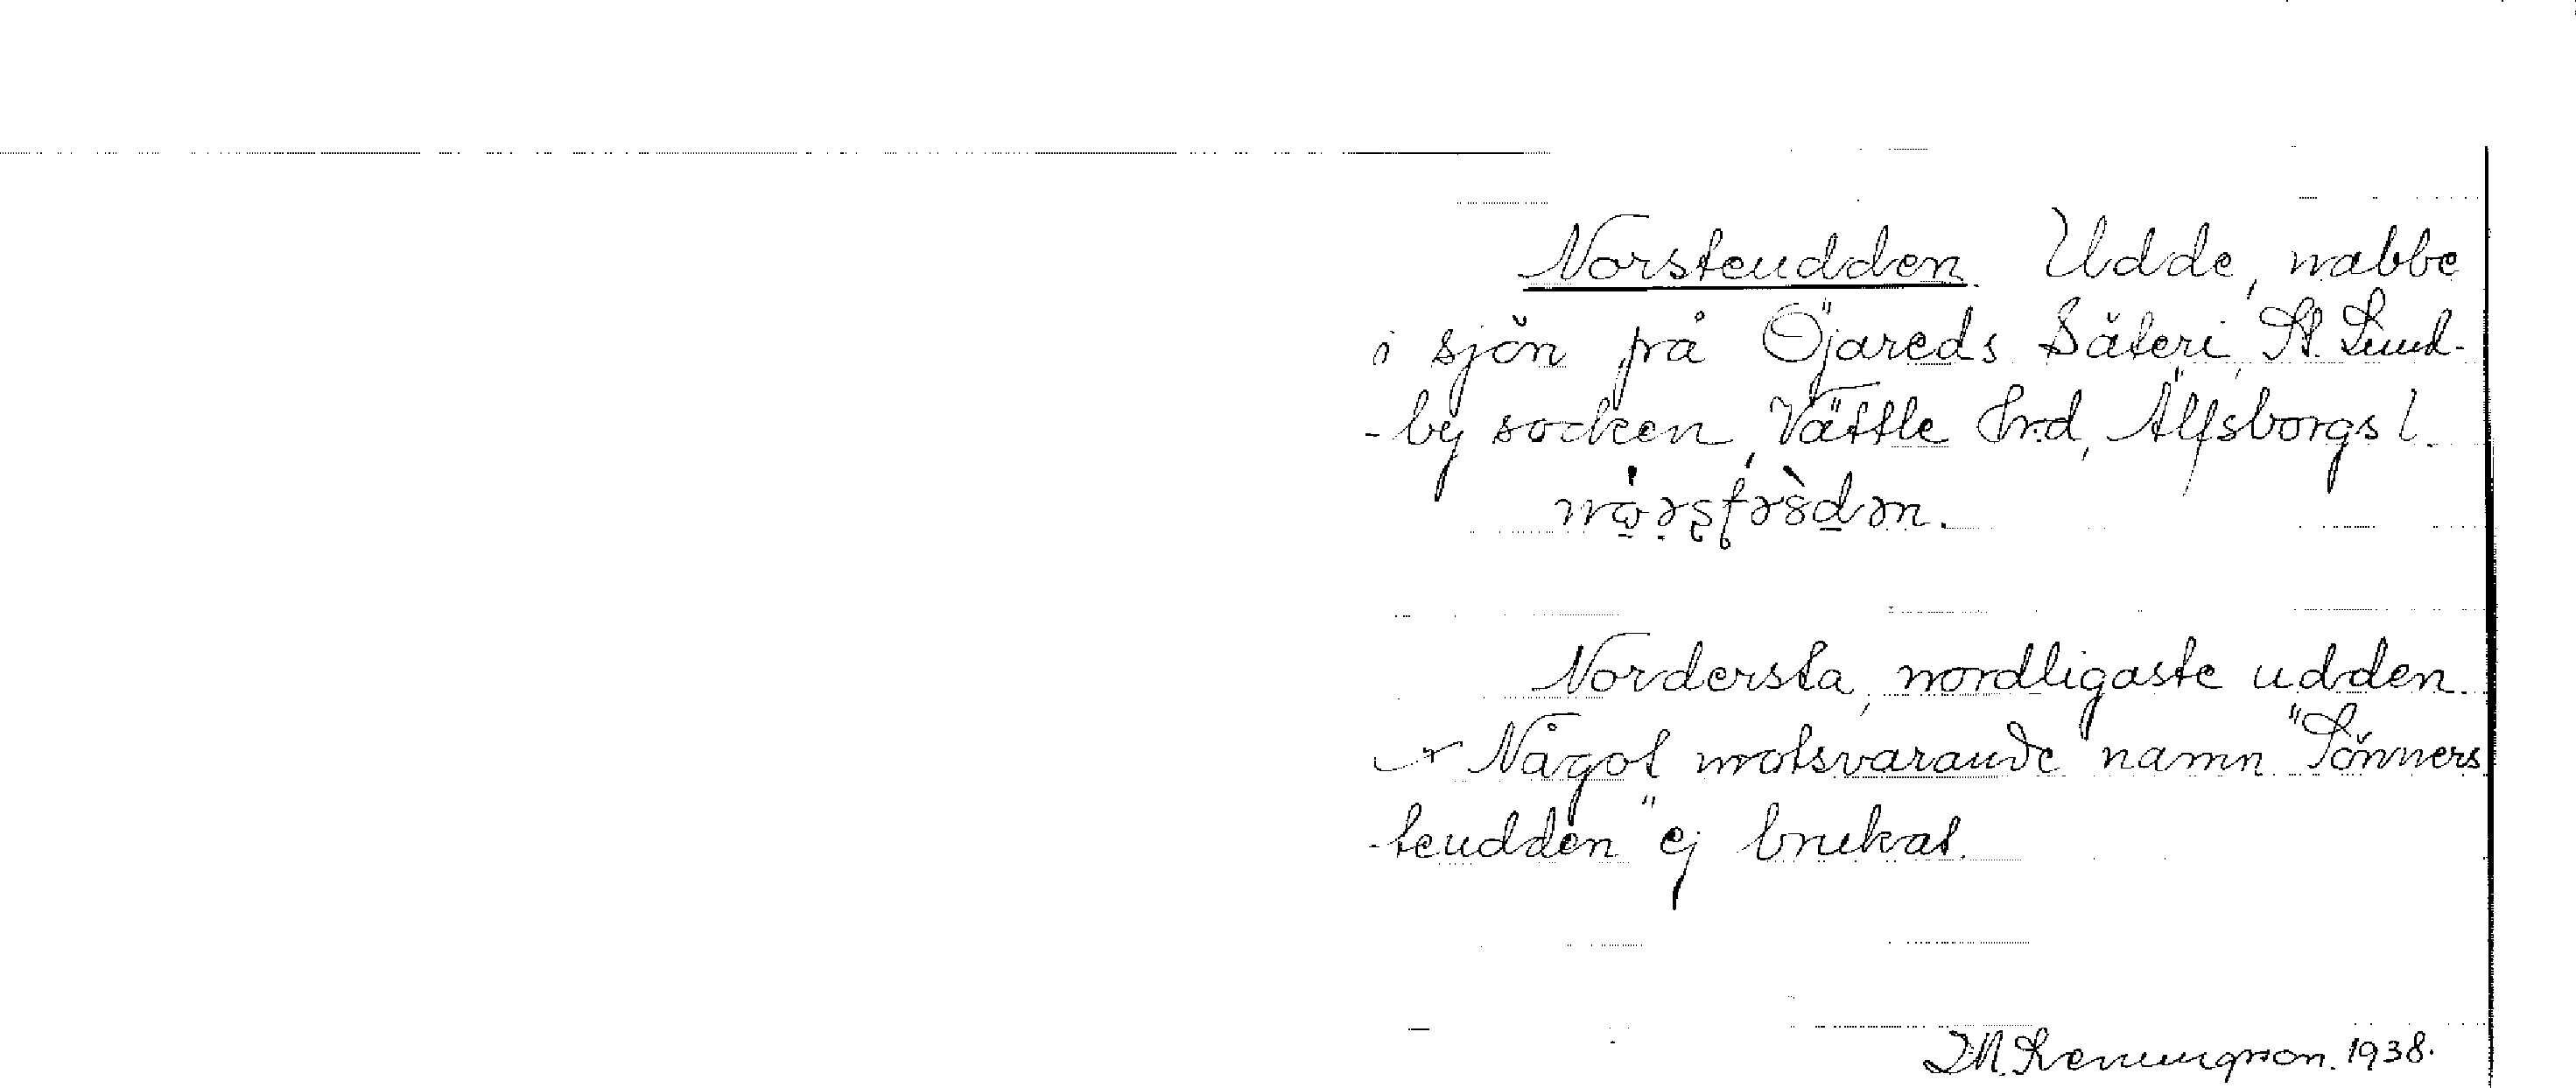 Norsteudden. Udde, nabbe
i sjön på Öjareds Säteri, St. Lund-
-by socken, Vättle Hrd, Älfsborgs l.
Nordersta, nordligaste udden.
Något motsvarande namn "Sönners
-teudden" ej brukat.
1938.